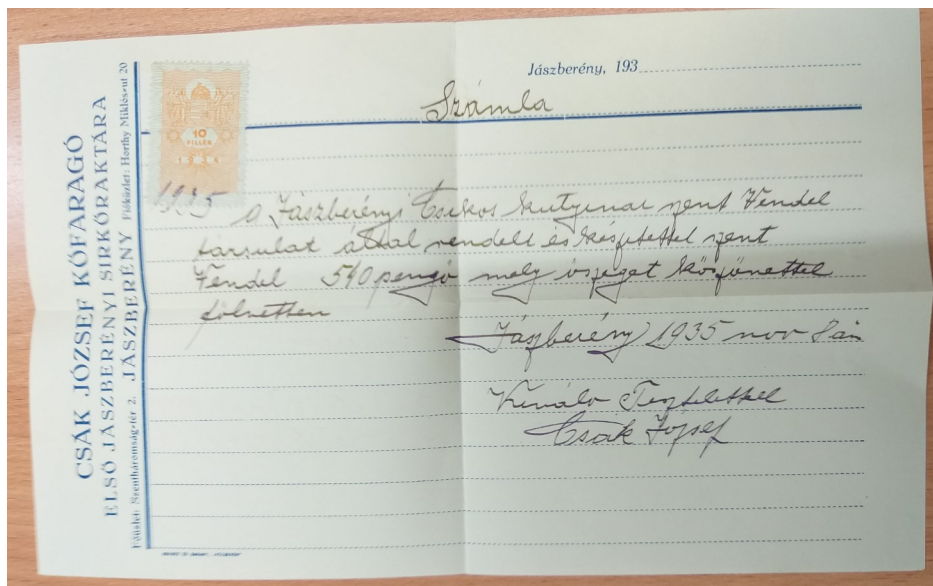 CSÁK JÓZSEF KŐFARAGÓ
ELSŐ JÁSZBERÉNYI SÍRKŐRAKTÁRA
Főüzlet: Szentháromság-tér 2. JÁSZBERÉNY Fióküzlet: Horthy Miklós-ut 20
10
FILLÉR
1934
Jászberény, 193
Számla
1935
a Jászberényi Csikos kutyinai szent Vendel
társulat által rendelt és készitettel szent
Vendel 540 pengő mely öszeget köszönettel
fölvettem
Jászberény 1935 nov 8 án
Kiváló Tisztelettel
Csák Jozsef